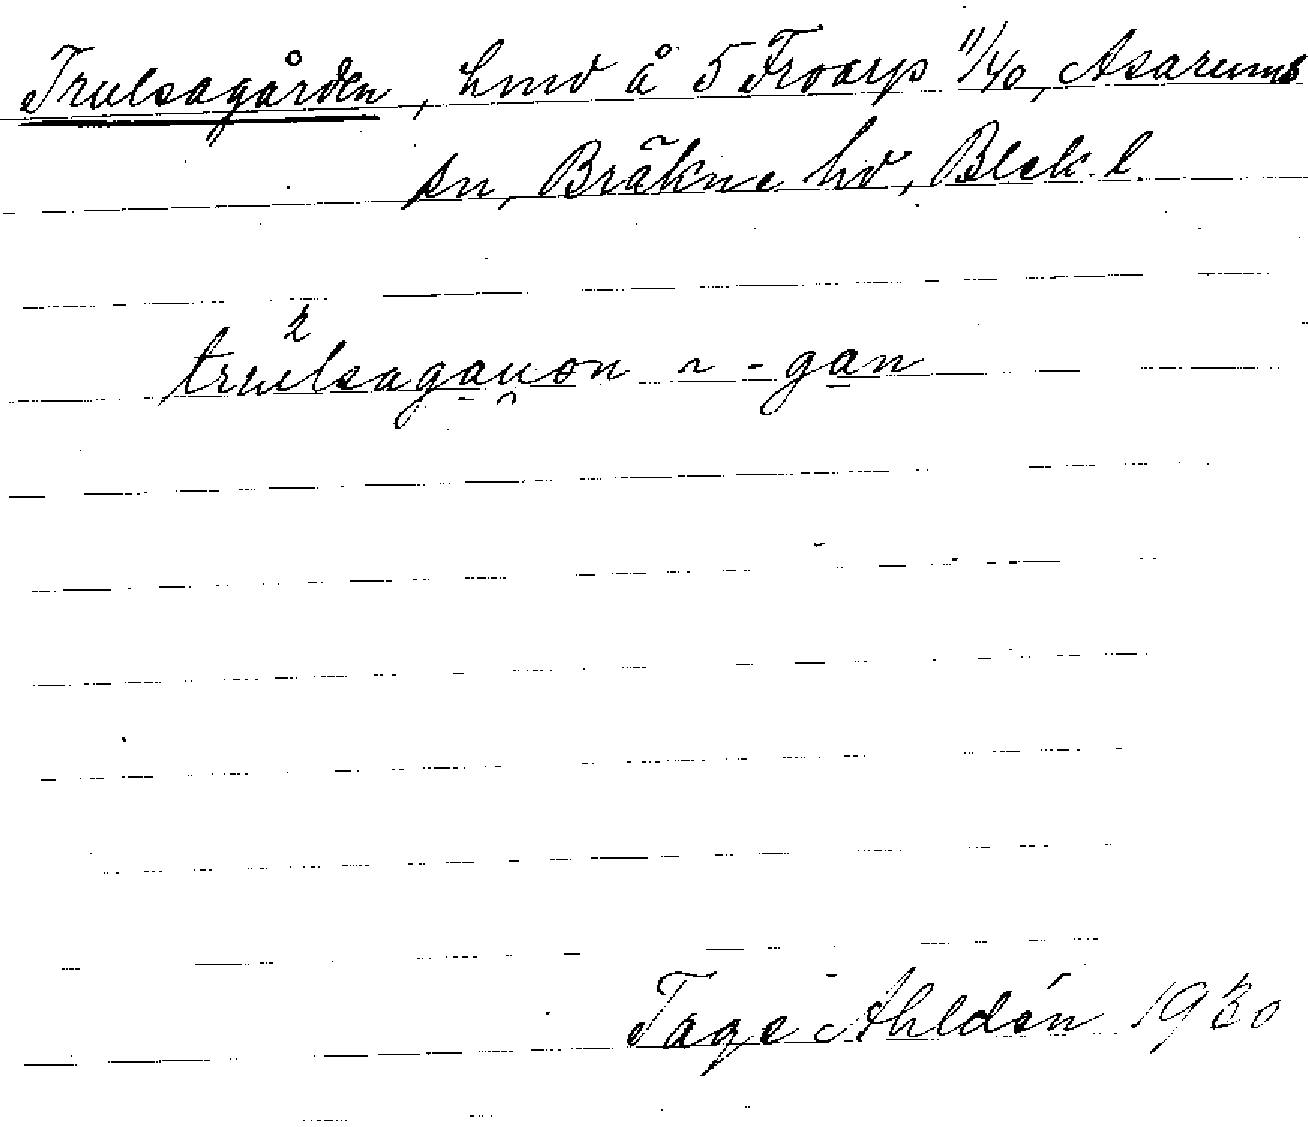 Trulsagården, hmd å 5 Froarp 11/40, Asarums
sn, Bräkne hd, Blek. l.
trulsagauon ~ -gan
Tage Ahldén 1930